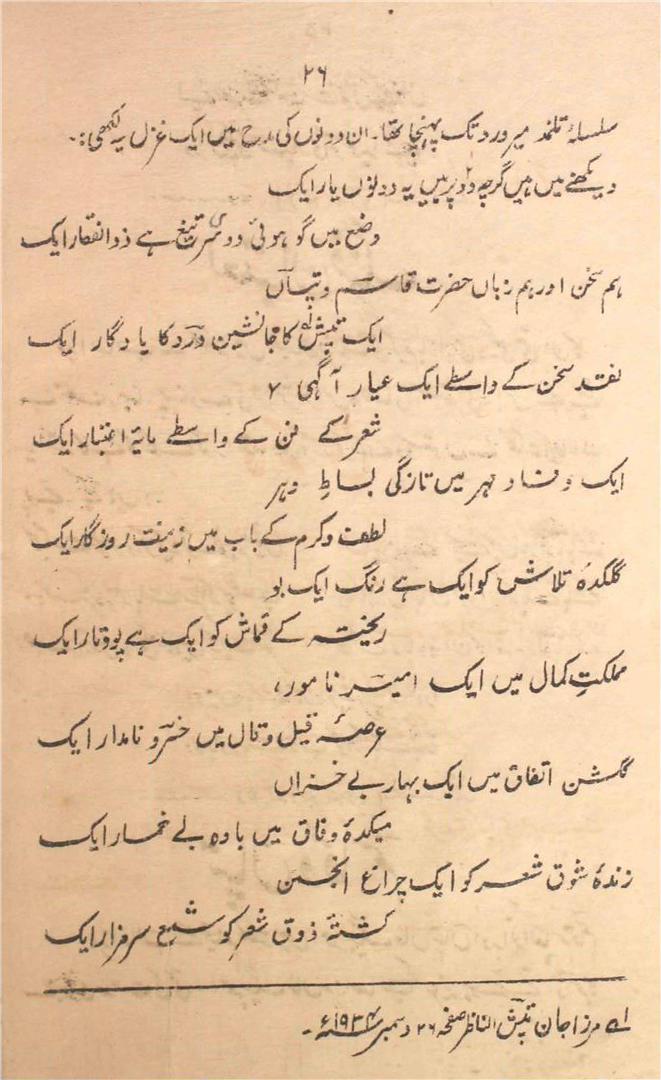 ۲۶
سلسلۂ تلمذ میر درد تک پہنچا تھا۔ ان دونوں کی مدح میں ایک غزل یہ لکھی:۔
دیکھنے میں ہیں گرچہ دو پر ہیں یہ دونوں یار ایک
وضع میں گو ہوئی دو سر تیغ ہے ذوالفقار ایک
ہم سخن اور ہم زباں حضرت قاسم و تپاں
ایک تپش لہ کا جانشین درد کا یادگار ایک
نقد سخن کے واسطے ایک عیار آگہی ۷
شعر کے فن کے واسطے مایۂ اعتبار ایک
ایک وفا و مہر میں تازگی بساطِ دہر
لطف و کرم کے باب میں زینت روزگار ایک
گلکدہ تلاش کو ایک ہے رنگ ایک بو
ریختہ کے قماش کو ایک ہے پود تار ایک
مملکتِ کمال میں ایک امیر نامور،
عرصۂ قیل و قال میں خسرو نامدار ایک
گلشن اتفاق میں ایک بہار بے خزاں
میکدۂ وفاق میں بادہ بے خمار ایک
زندۂ شوق شعر کو ایک چراغ انجمن
کشتۂ ذوق شعر کو شمع سر مزار ایک
لہ مرزا جان تپش الناظر صفحہ ۲۶ دسمبر ۱۹۳۴ء۔